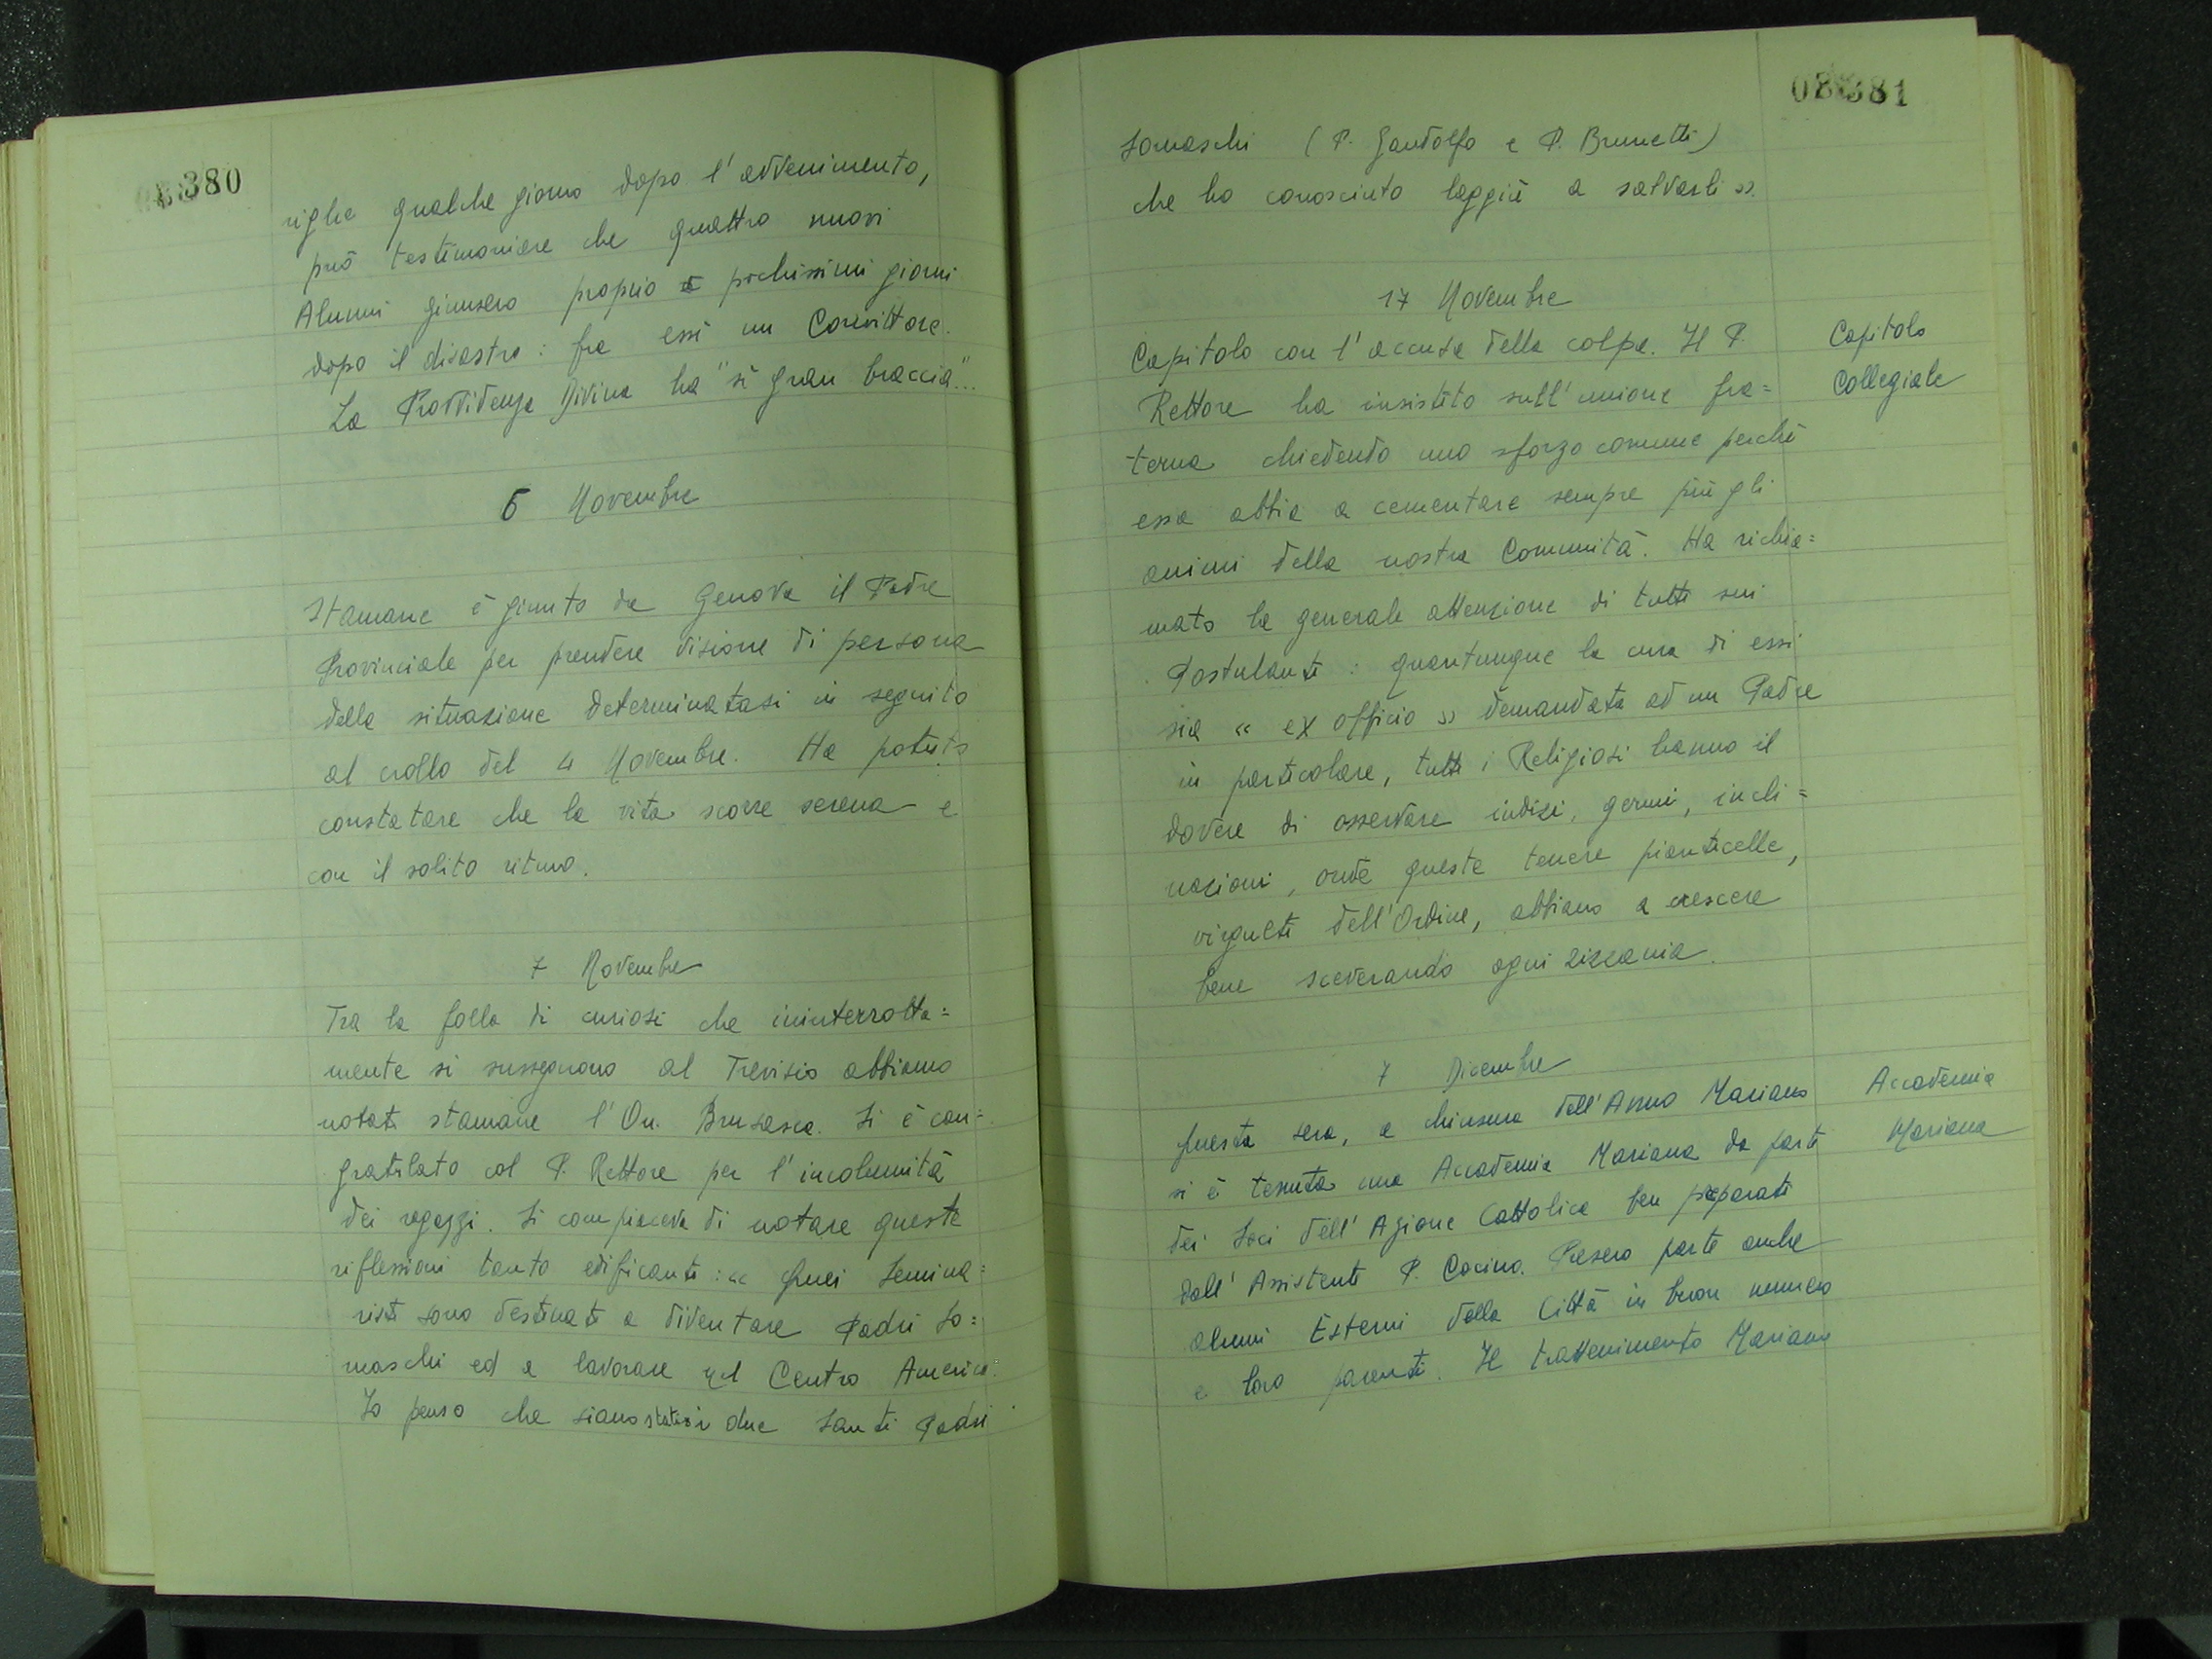 380
righe qualche giorno dopo l'avvenimento,
può testimoniare che quattro nuovi
Alunni giunsero proprio pochissimi giorni
dopo il disastro: fra essi un Convittore.
La Provvidenza Divina ha "sì gran braccia"...
6 Novembre
Stamane è giunto da Genova il Padre
Provinciale per prendere visione di persona
della situazione determinatasi in seguito
al crollo del 4 Novembre. Ha potuto
constatare che la vita scorre serena e
con il solito ritmo.
7 Novembre
Tra la folla di curiosi che ininterrotta=
mente si susseguono al Trevisio abbiamo
notato stamane l'On. Brusasca. Si è con=
gratulato col P. Rettore per l'incolumità
dei ragazzi. Si compiaceva di notare queste
riflessioni tanto edificanti: « Quei Semina=
risti sono destinati a diventare Padri So=
maschi ed a lavorare nel Centro America.
Io penso che siano stati i due Santi Padri
381
Somaschi (P. Gandolfo e P. Brunetti)
che ho conosciuto laggiù a salvarli ».
17 Novembre
Capitolo con l'accusa della colpa. Il P.
Rettore ha insistito sull'unione fra=
terna chiedendo uno sforzo comune perché
essa abbia a cementare sempre più gli
animi della nostra Comunità. Ha richia=
mato la generale attenzione di tutti sui
Postulanti: quantunque la cura di essi
sia « ex officio » demandata ad un Padre
in particolare, tutti i Religiosi hanno il
dovere di osservare indizi, germi, incli=
nazioni, onde queste tenere pianticelle,
virgulti dell'Ordine, abbiano a crescere
bene sceverando ogni zizzania.
Capitolo
Collegiale
7 Dicembre
Questa sera, a chiusura dell'Anno Mariano
si è tenuta una Accademia Mariana da parte
dei Soci dell'Azione Cattolica ben preparati
dall'Assistente P. Cocino. Presero parte anche
alunni Esterni della Città in buon numero
e loro parenti. Il trattenimento Mariano
Accademia
Mariana